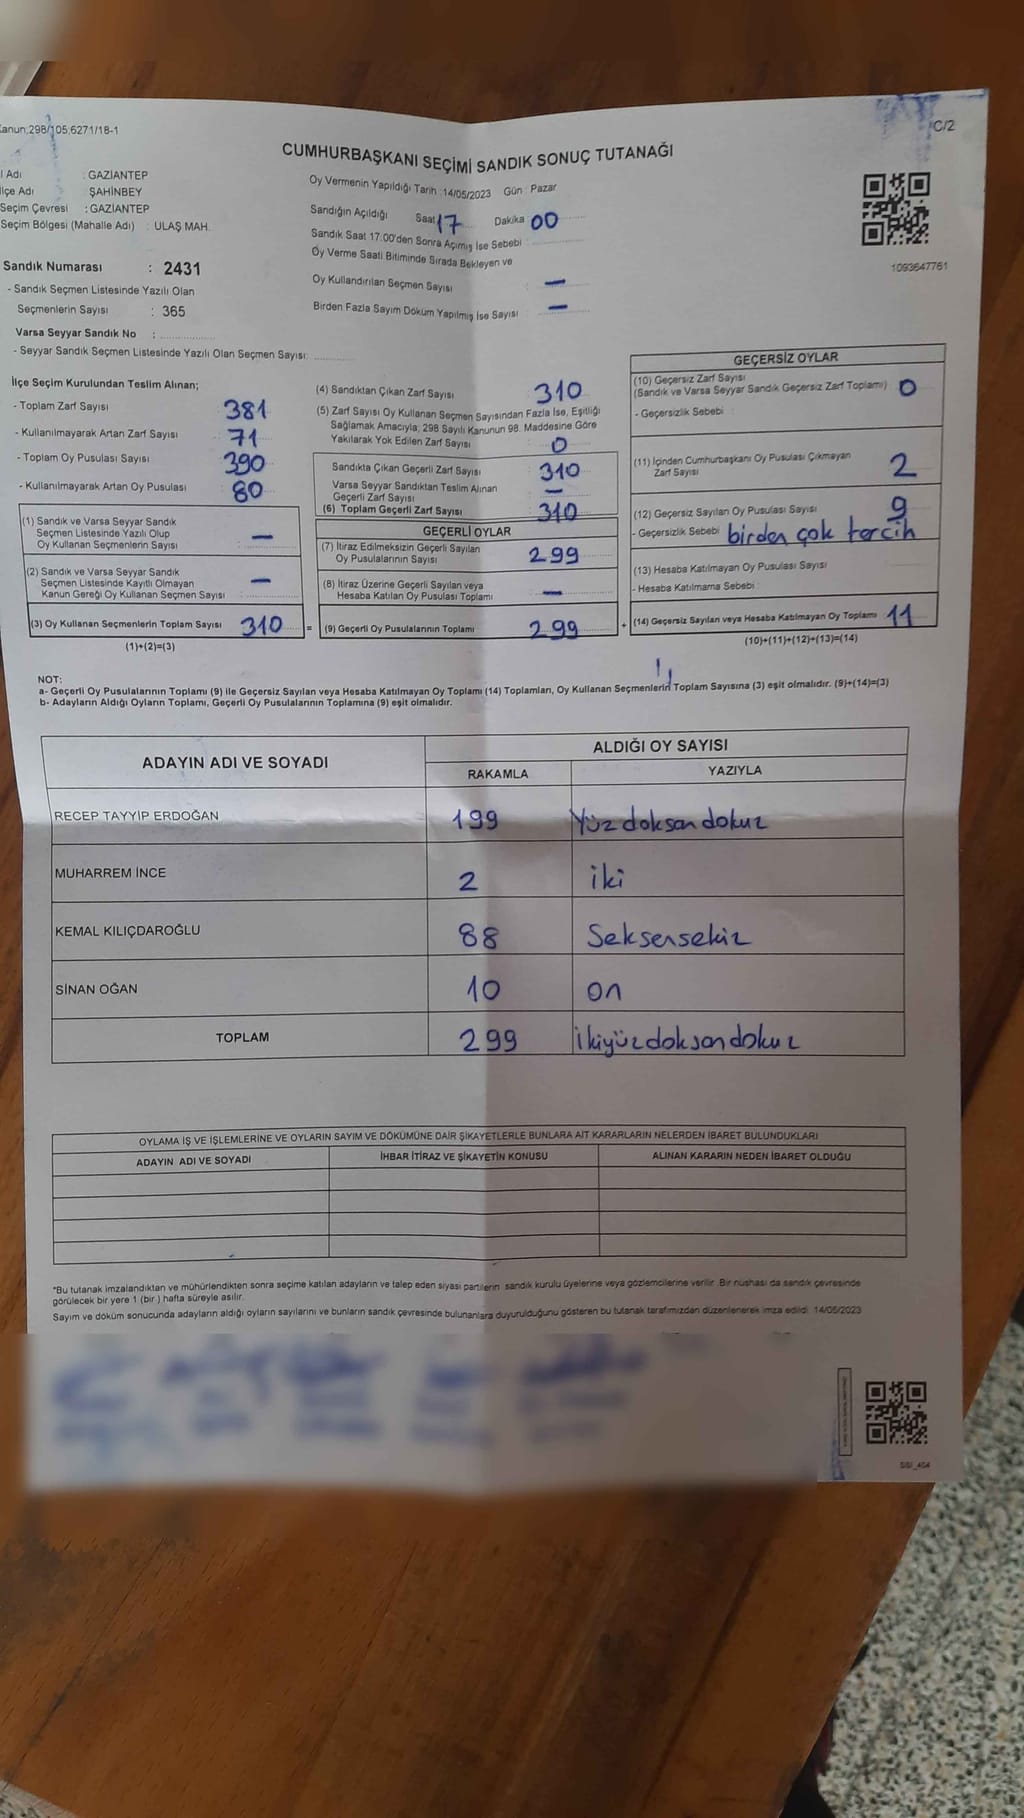 Kanun;298/105;6271/18-1
C/2
CUMHURBAŞKANI SEÇİMİ SANDIK SONUÇ TUTANAĞI
l Adı : GAZİANTEP
lçe Adı ŞAHİNBEY
Seçim Çevresi : GAZİANTEP
Seçim Bölgesi (Mahalle Adı) : ULAŞ MAH.
Oy Vermenin Yapıldığı Tarih :14/05/2023 Gün : Pazar
Sandığın Açıldığı Saat 17 Dakika 00
Sandık Saat 17:00'den Sonra Açımış İse Sebebi
Oy Verme Saati Bitiminde Sırada Bekleyen ve
Oy Kullandırılan Seçmen Sayısı : —
Birden Fazla Sayım Döküm Yapılmış İse Sayısı : —
1093647761
Sandık Numarası : 2431
- Sandık Seçmen Listesinde Yazılı Olan
Seçmenlerin Sayısı : 365
Varsa Seyyar Sandık No :
- Seyyar Sandık Seçmen Listesinde Yazılı Olan Seçmen Sayısı:
İlçe Seçim Kurulundan Teslim Alınan;
- Toplam Zarf Sayısı : 381
- Kullanılmayarak Artan Zarf Sayısı : 71
- Toplam Oy Pusulası Sayısı : 390
- Kullanılmayarak Artan Oy Pusulası : 80
(1) Sandık ve Varsa Seyyar Sandık
Seçmen Listesinde Yazılı Olup
Oy Kullanan Seçmenlerin Sayısı : —
(2) Sandık ve Varsa Seyyar Sandık
Seçmen Listesinde Kayıtlı Olmayan
Kanun Gereği Oy Kullanan Seçmen Sayısı : —
(3) Oy Kullanan Seçmenlerin Toplam Sayısı 310
(1)+(2)=(3)
(4) Sandıktan Çıkan Zarf Sayısı : 310
(5) Zarf Sayısı Oy Kullanan Seçmen Sayısından Fazla İse, Eşitliği
Sağlamak Amacıyla, 298 Sayılı Kanunun 98. Maddesine Göre
Yakılarak Yok Edilen Zarf Sayısı : 0
Sandıkta Çıkan Geçerli Zarf Sayısı : 310
Varsa Seyyar Sandıktan Teslim Alınan
Geçerli Zarf Sayısı : —
(6) Toplam Geçerli Zarf Sayısı : 310
GEÇERLİ OYLAR
(7) İtiraz Edilmeksizin Geçerli Sayılan
Oy Pusulalarının Sayısı : 299
(8) İtiraz Üzerine Geçerli Sayılan veya
Hesaba Katılan Oy Pusulası Toplamı : —
= (9) Geçerli Oy Pusulalarının Toplamı : 299
GEÇERSİZ OYLAR
(10) Geçersiz Zarf Sayısı
(Sandık ve Varsa Seyyar Sandık Geçersiz Zarf Toplamı) : 0
- Geçersizlik Sebebi :
(11) İçinden Cumhurbaşkanı Oy Pusulası Çıkmayan
Zarf Sayısı : 2
(12) Geçersiz Sayılan Oy Pusulası Sayısı : 9
- Geçersizlik Sebebi birden çok tercih
(13) Hesaba Katılmayan Oy Pusulası Sayısı :
- Hesaba Katılmama Sebebi :
+ (14) Geçersiz Sayılan veya Hesaba Katılmayan Oy Toplamı : 11
(10)+(11)+(12)+(13)=(14)
NOT:
a- Geçerli Oy Pusulalarının Toplamı (9) ile Geçersiz Sayılan veya Hesaba Katılmayan Oy Toplamı (14) Toplamları, Oy Kullanan Seçmenlerin Toplam Sayısına (3) eşit olmalıdır. (9)+(14)=(3)
b- Adayların Aldığı Oyların Toplamı, Geçerli Oy Pusulalarının Toplamına (9) eşit olmalıdır.
ADAYIN ADI VE SOYADI ALDIĞI OY SAYISI
RAKAMLA YAZIYLA
RECEP TAYYİP ERDOĞAN 199 Yüzdoksandokuz
MUHARREM İNCE 2 iki
KEMAL KILIÇDAROĞLU 88 Seksensekiz
SİNAN OĞAN 10 on
TOPLAM 299 ikiyüzdoksandokuz
OYLAMA İŞ VE İŞLEMLERİNE VE OYLARIN SAYIM VE DÖKÜMÜNE DAİR ŞİKAYETLERLE BUNLARA AİT KARARLARIN NELERDEN İBARET BULUNDUKLARI
ADAYIN ADI VE SOYADI İHBAR İTİRAZ VE ŞİKAYETİN KONUSU ALINAN KARARIN NEDEN İBARET OLDUĞU
*Bu tutanak imzalandıktan ve mühürlendikten sonra seçime katılan adayların ve talep eden siyasi partilerin sandık kurulu üyelerine veya gözlemcilerine verilir. Bir nüshası da sandık çevresinde
görülecek bir yere 1 (bir ) hafta süreyle asılır.
Sayım ve döküm sonucunda adayların aldığı oyların sayılarını ve bunların sandık çevresinde bulunanlara duyurulduğunu gösteren bu tutanak tarafımızdan düzenlenerek imza edildi. 14/05/2023